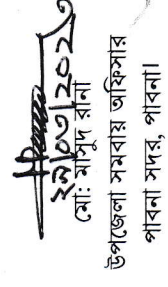 ২৯/০৩/২০২
মো: মাসুদ রানা
উপজেলা সমবায় অফিসার
পাবনা সদর, পাবনা।